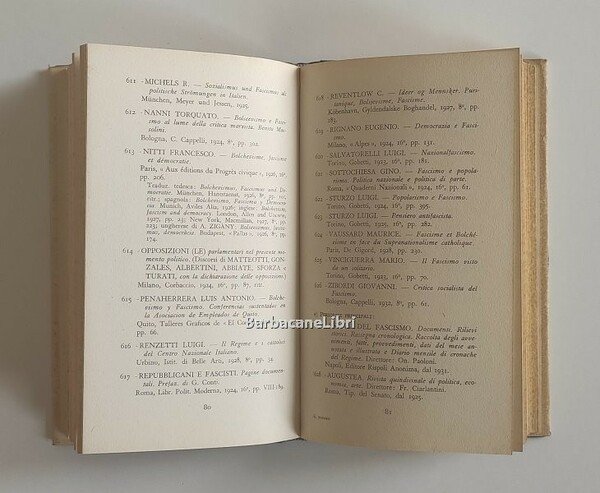 611 - MICHELS R. — Sozialismus und Fascismus als
politische Strömungen in Italien.
München, Meyer und Jessen, 1925.
612 - NANNI TORQUATO. — Bolscevismo e Fasci-
smo al lume della critica marxista. Benito Mus-
solini.
Bologna, C. Cappelli, 1924, 8º, pp. 302.
613 - NITTI FRANCESCO. — Bolchevisme, fascisme
et démocratie.
Paris, « Aux éditions du Progrès civique », 1926, 16º,
pp. 206.
Traduz. tedesca: Bolschevismus, Fascismus und De-
mocratie. München, Hanstaengl, 1926, 8º,
spagnola: Bolchevismo, Fascismo y Demo-
cracia Madrid, Aviles Alia, 1926; inglese: Bolshevism,
fascism and democracy. London, Allen and Unwin,
1927, pp. 23; New York, Macmillan, 1927, 8º, pp.
223; ungherese di A. ZIGANY: Bolsevizmus, fasciz-
mus, democrácia. Budapest, « Pallas », 1926, 8º, pp.
174.
614 - OPPOSIZIONI (LE) parlamentari nel presente mo-
mento politico. (Discorsi di MATTEOTTI, GON-
ZALES, ALBERTINI, ABBIATE, SFORZA e
TURATI, con la dichiarazione delle opposizioni)
Milano, Corbaccio, 1924, 16º, p. 87,
615 - PENAHERRERA LUIS ANTONIO. — Bolche-
vismo y Fascismo. Conferencias sustentadas en
la Asociacion de Empleados de Quito.
Quito, Tulleres Graficos de « El Co
pp. 66.
616 - RENZETTI LUIGI. — Il Regime e i cattolici
del Centro Nazionale Italiano.
Urbino, Istit. di Belle Arti, 1928, 8º, pp. 32
617 - REPUBBLICANI E FASCISTI. Pagine documen-
tali. Prefaz. di G. Conti.
Roma, Libr. Polit. Moderna, 1924, 16º, pp. VIII-189.
80
618 - REVENTLOW C. — Ideer og Mennsker. Puri-
tanisme, Bolsevisme, Fascisme.
København, Gyldendalske Boghandel, 1927, 8º, pp.
183.
619 - RIGNANO EUGENIO. — Democrazia e Fasci-
smo.
Milano, « Alpes », 1924, 16º, pp. 131.
620 - SALVATORELLI LUIGI. — Nazionalfascismo.
Torino, Gobetti, 1923, 16º, pp. 181.
621 - SOTTOCHIESA GINO. — Fascismo e popola-
rismo. Politica nazionale e politica di parte.
Roma, « Quaderni Nazionali », 1924, 16º, pp. 61.
622 - STURZO LUIGI. — Popolarismo e Fascismo.
Torino, Gobetti, 1924, 16º, pp. 395.
623 - STURZO LUIGI. — Pensiero antifascista.
Torino, Gobetti, 1925, 16º, pp.
624 - VAUSSARD MAURICE. — Fascisme et Bolché-
visme en face du Supranationalisme catholique.
Paris, De Gigord, 1928, pp.
625 - VINCIGUERRA MARIO. — Il Fascismo visto
da un solitario.
Torino, Gobetti, 1923, 16º, pp. 70.
626 - ZIBORDI GIOVANNI. — Critica socialista del
Fascismo.
Bologna, Cappelli, 1922, 8º, pp. 61.
DEL FASCISMO. Documenti. Rilievi
Rassegna cronologica. Raccolta degli avve-
nimenti, fatte, provvedimenti, dati del mese anni-
illustrati e Diario mensile di cronache
del Regime. Direttore: On. Paoloni.
Napoli, Editore Rispoli Anonima, dal 1931.
628 - AUGUSTEA. Rivista quindicinale di politica, eco-
nomia, arte. Direttore: Fr. Ciarlantini.
Roma, Tip. del Senato, dal 1925.
81
BarbacaneLibri